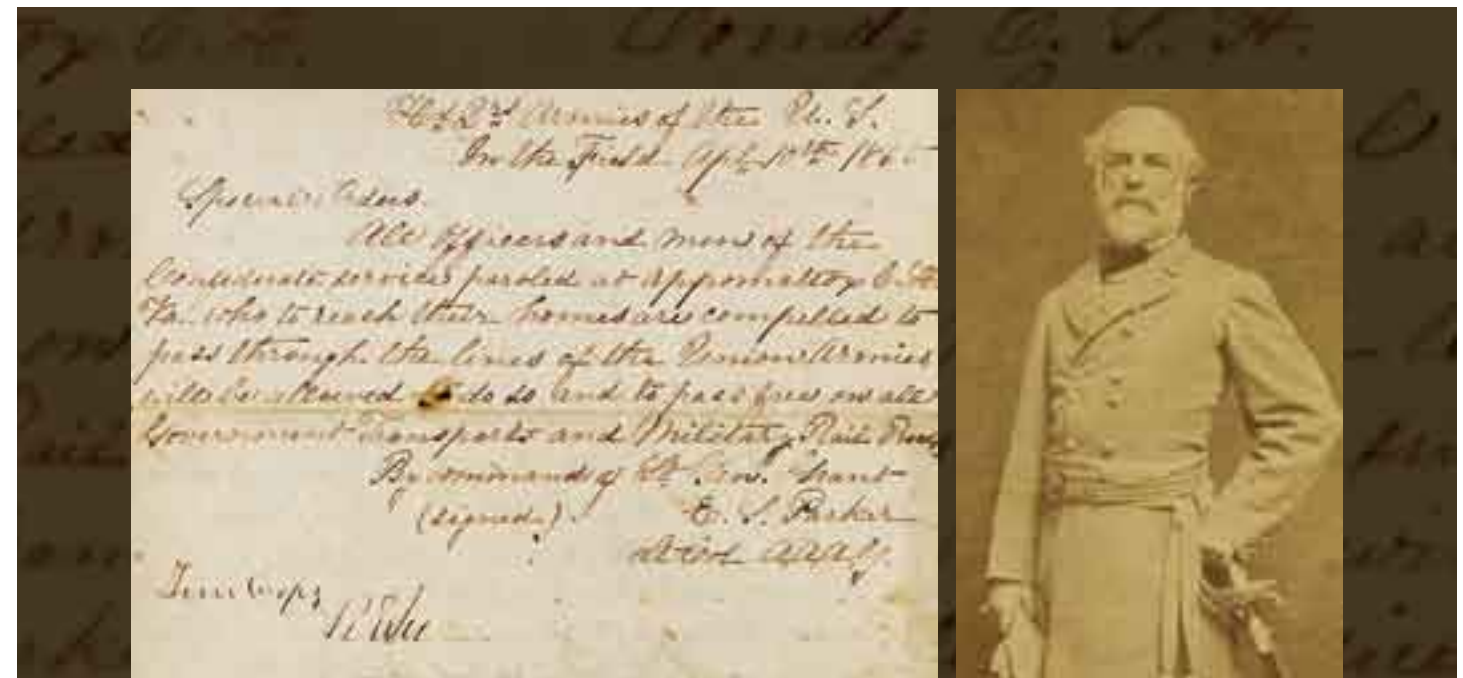 Hd Qrs Armies of the U. S.
In the Field Apl. 10th 1865
Special Orders.
All officers and men of the
Confederate service paroled at Appomattox C. H.
Va. who to reach their homes are compelled to
pass through the lines of the Union Armies
will be allowed to do so and to pass free on all
Government Transports and Military Rail Roads
By command of Lt Gen. Grant
(signed) E. S. Parker
A.A.G.
True Copy
R E Lee